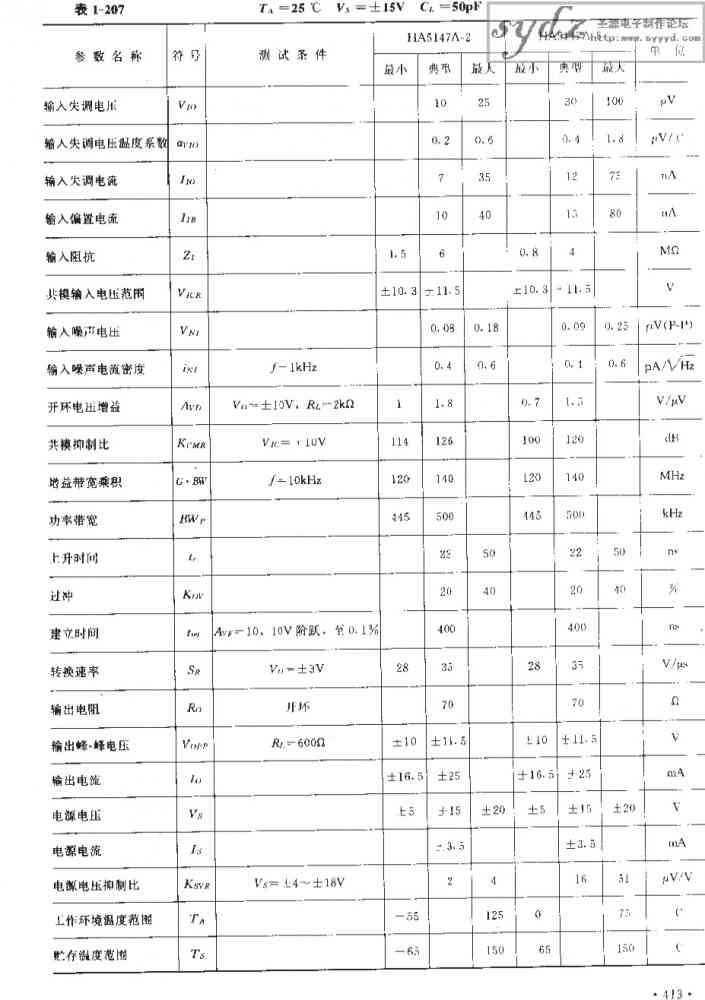 表 1-207 T_A=25 ℃ V_S=±15V C_L=50pF
圣源电子制作论坛
http:www.syyyd.com
参数名称 符号 测试条件 HA5147A-2 单位
最小 典型 最大 最小 典型 最大
输入失调电压 V_IO 10 25 30 100 μV
输入失调电压温度系数 α_VIO 0.2 0.6 0.4 1.8 μV/℃
输入失调电流 I_IO 7 35 12 75 nA
输入偏置电流 I_IB 10 40 15 80 nA
输入阻抗 Z_I 1.5 6 0.8 4 MΩ
共模输入电压范围 V_ICR ±10.3 ±11.5 ±10.3 ±11.5 V
输入噪声电压 V_NI 0.08 0.18 0.09 0.25 μV(P-P)
输入噪声电流密度 i_NI f=1kHz 0.4 0.6 0.6 pA/√Hz
开环电压增益 A_VD V_O=±10V，R_L=2kΩ 1 1.8 0.7 1.5 V/μV
共模抑制比 K_CMR V_IC=±10V 114 126 100 120 dB
增益带宽乘积 G·BW f=10kHz 120 140 120 140 MHz
功率带宽 BW_P 445 500 445 500 kHz
上升时间 t_r 22 50 22 50 ns
过冲 K_OV 20 40 20 40 %
建立时间 A_VF=10，10V阶跃，至0.1% 400 400 ns
转换速率 S_R V_O=±3V 28 35 28 35 V/μs
输出电阻 R_O 开环 70 70 Ω
输出峰-峰电压 V_OPP R_L=600Ω ±10 ±11.5 ±10 ±11.5 V
输出电流 I_O ±16.5 ±25 ±16.5 ±25 mA
电源电压 V_S ±5 ±15 ±20 ±5 ±15 ±20 V
电源电流 I_S ±3.5 ±3.5 mA
电源电压抑制比 K_SVR V_S=±4～±18V 2 4 16 51 μV/V
工作环境温度范围 T_A －55 125 0 75 ℃
贮存温度范围 T_S －65 150 65 150 ℃
·413·